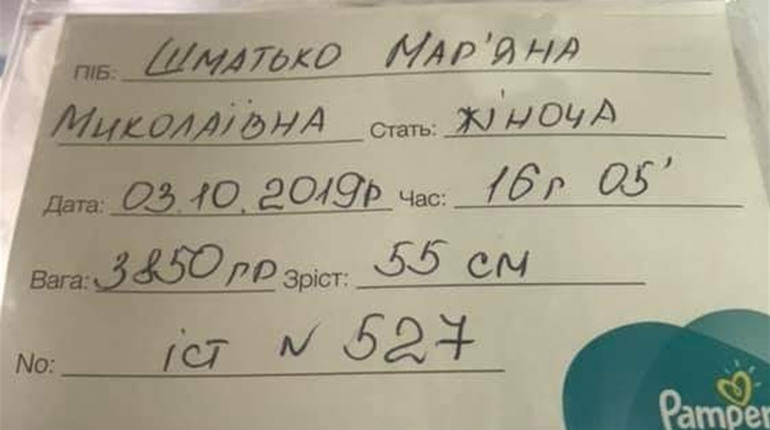 ПІБ: Шматько Мар'яна
Миколаївна Стать: жіноча
Дата: 03.10.2019р Час: 16г 05'
Вага: 3850гр Зріст: 55 см
No: іст N 527
Pampers